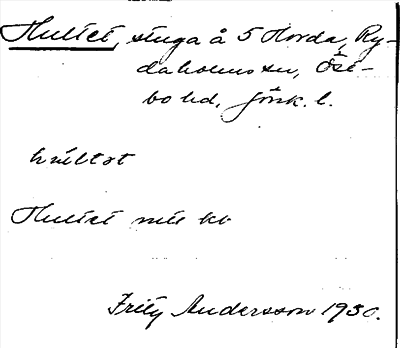 Hultet, stuga å 5 Horda, Ry-
daholms sn, Öst-
bo hd, Jönk. l.
hultət
Hultet nu kb
Fritz Andersson 1930.